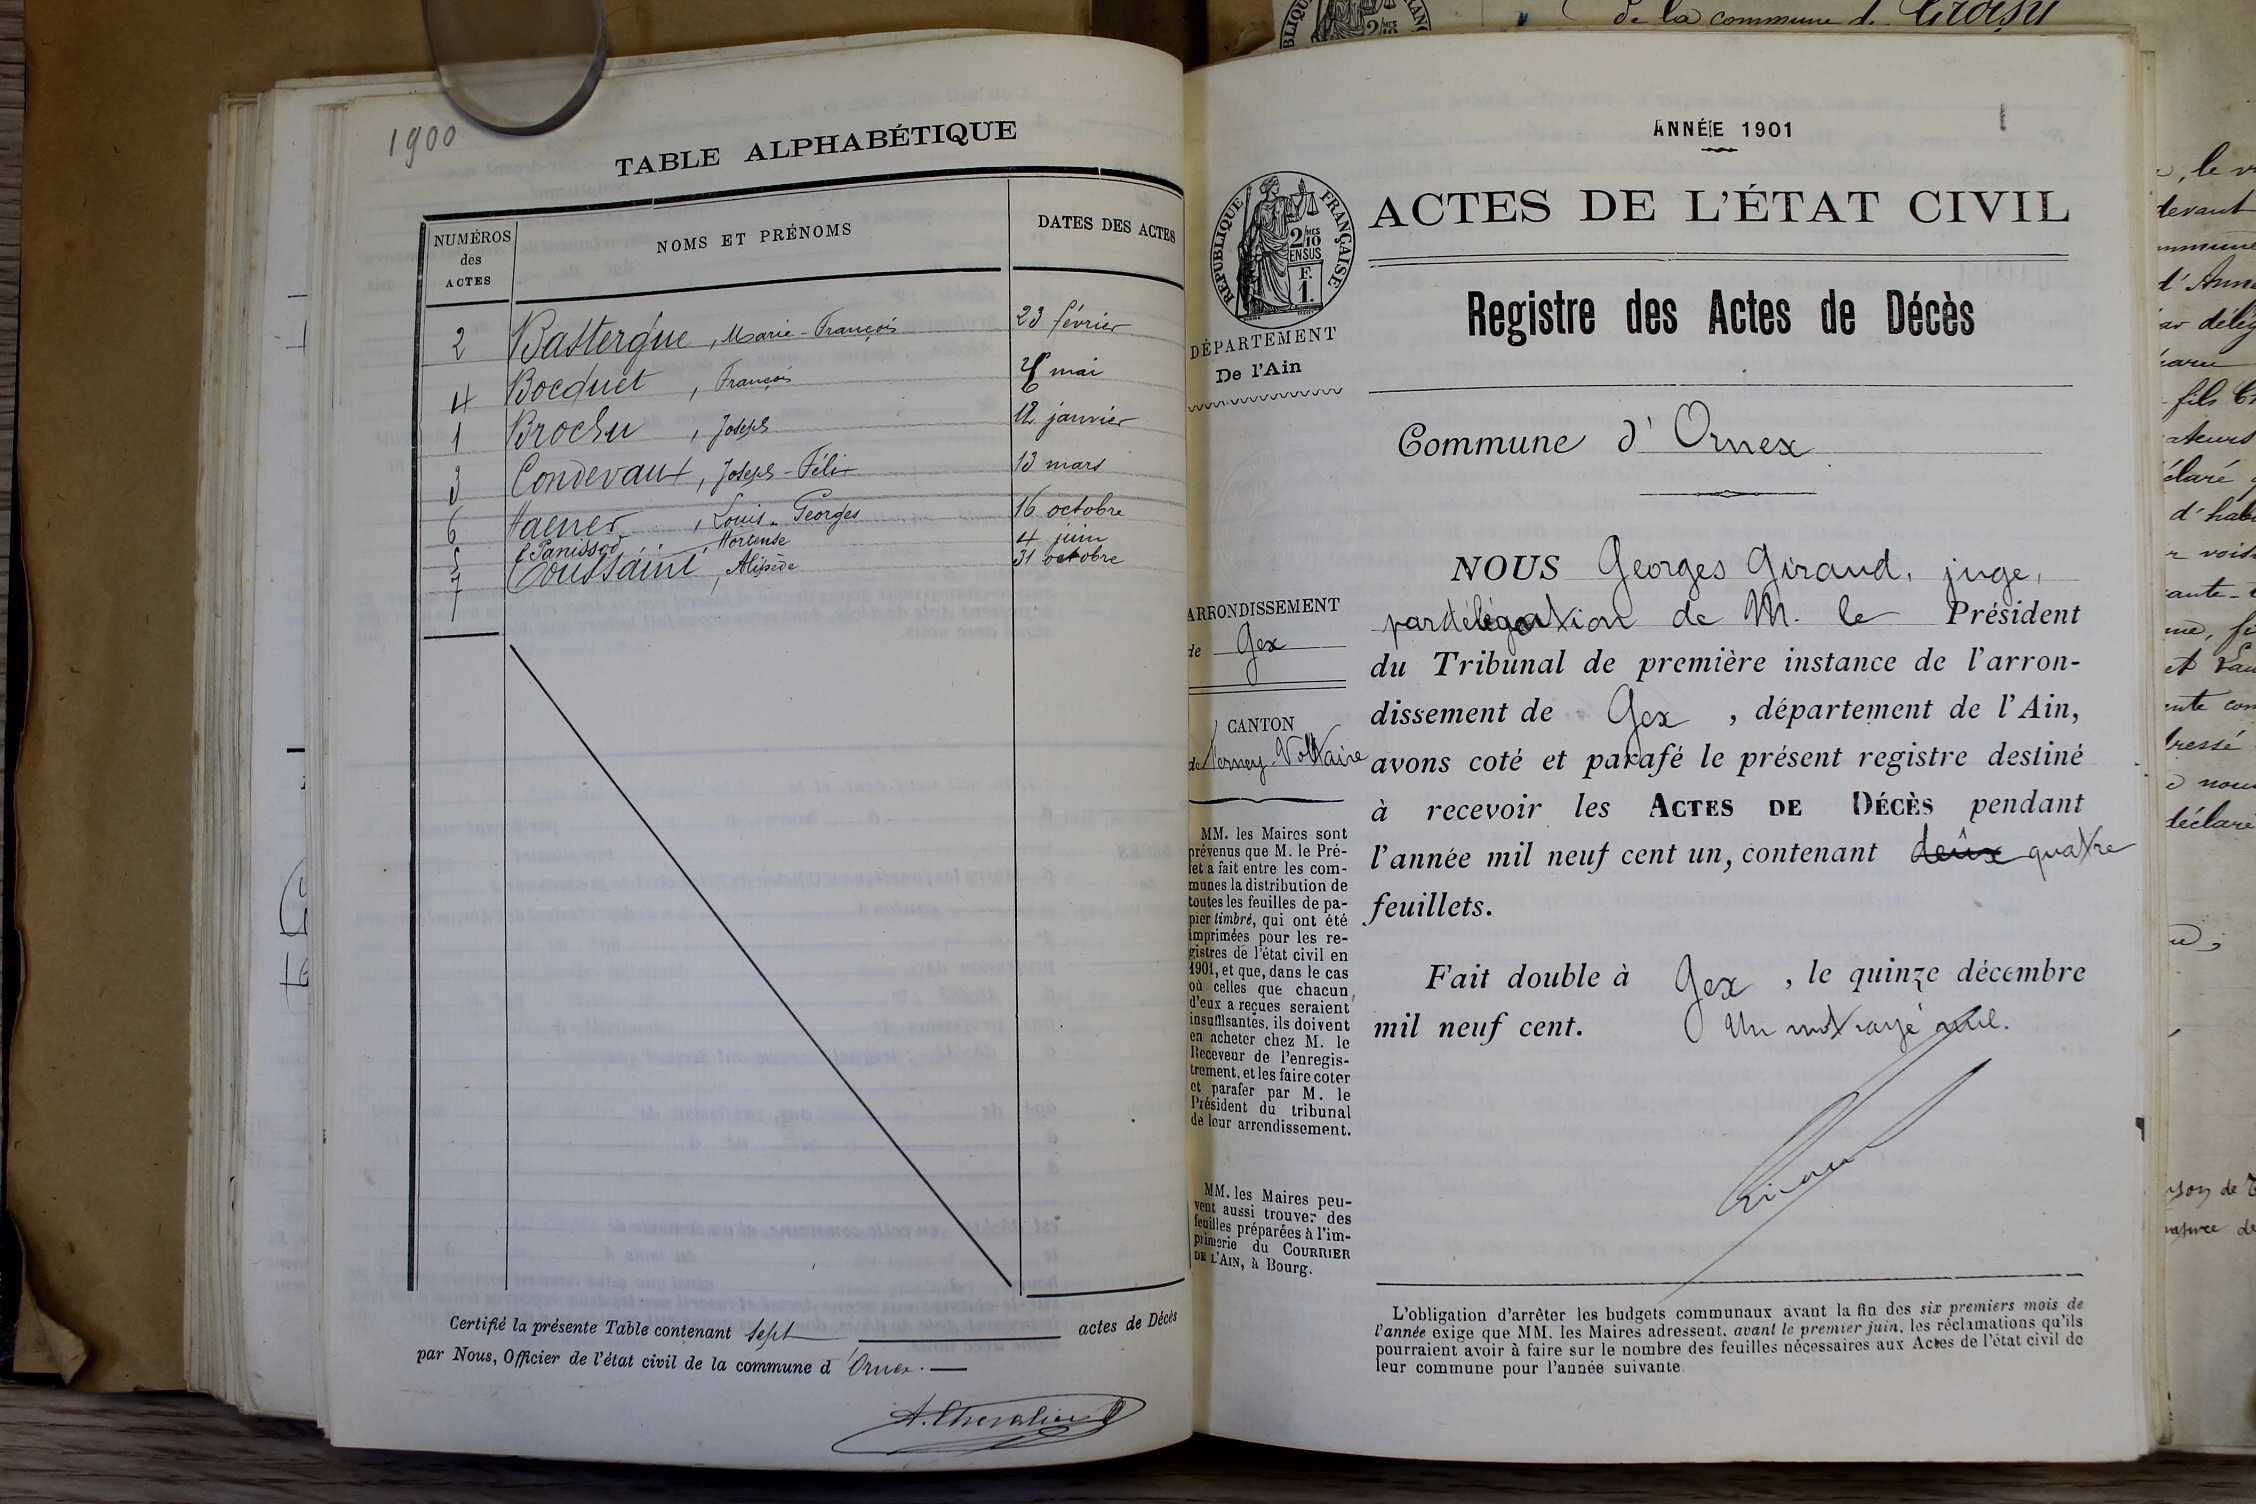 1900
TABLE ALPHABÉTIQUE
NUMÉROS
des
ACTES
NOMS ET PRÉNOMS
DATES DES ACTES
2 Bastergue, Marie-François 23 février
4 Bocquet, François mai
1 Brochu, Joseph 12 janvier
3 Condevaux, Joseph-Félix 13 mars
6 Haener, Louis-Georges 16 octobre
5 Panissod Hortense 4 juin
7 Toussaint, Alipède 31 octobre
Certifié la présente Table contenant sept actes de Décès
par Nous, Officier de l'état civil de la commune d'Ornex.
A. Chevalier
de la commune d. Croisy
ANNÉE 1901
RÉPUBLIQUE FRANÇAISE
2/10 MES
EN SUS
F.
1.
ACTES DE L'ÉTAT CIVIL
Registre des Actes de Décès
DÉPARTEMENT
De l'Ain
Commune d'Ornex
ARRONDISSEMENT
de Gex
CANTON
de Ferney-Voltaire
MM. les Maires sont
prévenus que M. le Pré-
fet a fait entre les com-
munes la distribution de
toutes les feuilles de pa-
pier timbré, qui ont été
imprimées pour les re-
gistres de l'état civil en
1901, et que, dans le cas
où celles que chacun
d'eux a reçues seraient
insuffisantes, ils doivent
en acheter chez M. le
Receveur de l'enregis-
trement, et les faire coter
et parafer par M. le
Président du tribunal
de leur arrondissement.
MM. les Maires peu-
vent aussi trouver des
feuilles préparées à l'im-
primerie du COURRIER
DE L'AIN, à Bourg.
NOUS Georges Giraud, juge,
par délégation de M. le Président
du Tribunal de première instance de l'arron-
dissement de Gex, département de l'Ain,
avons coté et parafé le présent registre destiné
à recevoir les ACTES DE DÉCÈS pendant
l'année mil neuf cent un, contenant deux quatre
feuillets.
Fait double à Gex, le quinze décembre
mil neuf cent. Un mot rayé nul.
L'obligation d'arrêter les budgets communaux avant la fin des six premiers mois de
l'année exige que MM. les Maires adressent, avant le premier juin, les réclamations qu'ils
pourraient avoir à faire sur le nombre des feuilles nécessaires aux Actes de l'état civil de
leur commune pour l'année suivante.